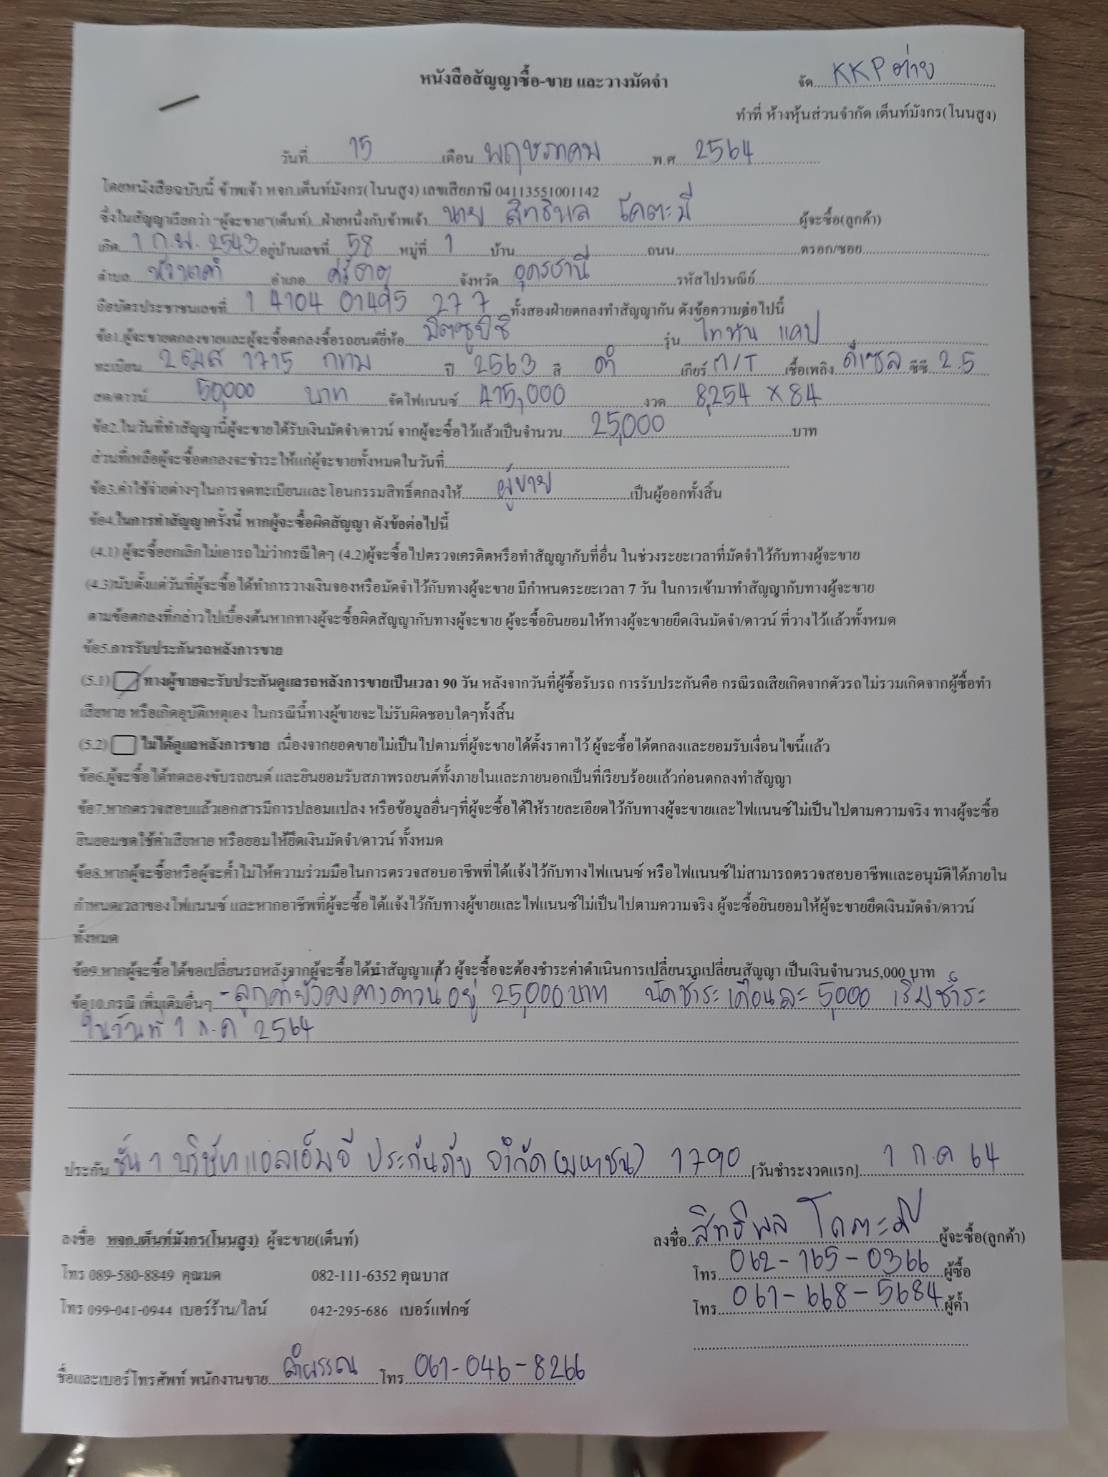 หนังสือสัญญาซื้อ-ขาย และวางมัดจำ
จัด KKP ต่าย
ทำที่ ห้างหุ้นส่วนจำกัด เต็นท์มังกร(โนนสูง)
วันที่ 15 เดือน พฤษภาคม พ.ศ 2564
โดยหนังสือฉบับนี้ ข้าพเจ้า หจก.เต็นท์มังกร(โนนสูง) เลขเสียภาษี 04113551001142
ซึ่งในสัญญาเรียกว่า "ผู้จะขาย"(เต็นท์) ฝ่ายหนึ่งกับข้าพเจ้า นาย สิทธิพล โคตะมี ผู้จะซื้อ(ลูกค้า)
เกิด 1 ก.พ. 2543 อยู่บ้านเลขที่ 58 หมู่ที่ 1 บ้าน ถนน ตรอก/ซอย
ตำบล หัวนาคำ อำเภอ ศรีธาตุ จังหวัด อุดรธานี รหัสไปรษณีย์
ถือบัตรประชาชนเลขที่ 1 4104 01495 27 7 ทั้งสองฝ่ายตกลงทำสัญญากัน ดังข้อความต่อไปนี้
ข้อ1.ผู้จะขายตกลงขายและผู้จะซื้อตกลงซื้อรถยนต์ยี่ห้อ มิตซูบิชิ รุ่น ไททัน แคป
ทะเบียน 2ฒส 1715 กทม ปี 2563 สี ดำ เกียร์ M/T เชื้อเพลิง ดีเซล ซีซี 2.5
สด/ดาวน์ 50,000 บาท จัดไฟแนนซ์ 475,000 งวด 8,254 x 84
ข้อ2.ในวันที่ทำสัญญานี้ผู้จะขายได้รับเงินมัดจำ/ดาวน์ จากผู้จะซื้อไว้แล้วเป็นจำนวน 25,000 บาท
ส่วนที่เหลือผู้จะซื้อตกลงจะชำระให้แก่ผู้จะขายทั้งหมดในวันที่
ข้อ3.ค่าใช้จ่ายต่างๆในการจดทะเบียนและโอนกรรมสิทธิ์ตกลงให้ ผู้ขาย เป็นผู้ออกทั้งสิ้น
ข้อ4.ในการทำสัญญาครั้งนี้ หากผู้จะซื้อผิดสัญญา ดังข้อต่อไปนี้
(4.1) ผู้จะซื้อยกเลิกไม่เอารถไม่ว่ากรณีใดๆ (4.2)ผู้จะซื้อไปตรวจเครดิตหรือทำสัญญากับที่อื่น ในช่วงระยะเวลาที่มัดจำไว้กับทางผู้จะขาย
(4.3)นับตั้งแต่วันที่ผู้จะซื้อได้ทำการวางเงินจองหรือมัดจำไว้กับทางผู้จะขาย มีกำหนดระยะเวลา 7 วัน ในการเข้ามาทำสัญญากับทางผู้จะขาย
ตามข้อตกลงที่กล่าวไปเบื้องต้นหากทางผู้จะซื้อผิดสัญญากับทางผู้จะขาย ผู้จะซื้อยินยอมให้ทางผู้จะขายยึดเงินมัดจำ/ดาวน์ ที่วางไว้แล้วทั้งหมด
ข้อ5.การรับประกันรถหลังการขาย
(5.1) ทางผู้ขายจะรับประกันดูแลรถหลังการขายเป็นเวลา 90 วัน หลังจากวันที่ผู้ซื้อรับรถ การรับประกันคือ กรณีรถเสียเกิดจากตัวรถไม่รวมเกิดจากผู้ซื้อทำ
เสียหาย หรือเกิดอุบัติเหตุเอง ในกรณีนี้ทางผู้ขายจะไม่รับผิดชอบใดๆทั้งสิ้น
(5.2) ไม่ได้ดูแลหลังการขาย เนื่องจากยอดขายไม่เป็นไปตามที่ผู้จะขายได้ตั้งราคาไว้ ผู้จะซื้อได้ตกลงและยอมรับเงื่อนไขนี้แล้ว
ข้อ6.ผู้จะซื้อได้ทดลองขับรถยนต์ และยินยอมรับสภาพรถยนต์ทั้งภายในและภายนอกเป็นที่เรียบร้อยแล้วก่อนตกลงทำสัญญา
ข้อ7.หากตรวจสอบแล้วเอกสารมีการปลอมแปลง หรือข้อมูลอื่นๆที่ผู้จะซื้อได้ให้รายละเอียดไว้กับทางผู้จะขายและไฟแนนซ์ไม่เป็นไปตามความจริง ทางผู้จะซื้อ
ยินยอมชดใช้ค่าเสียหาย หรือยอมให้ยึดเงินมัดจำ/ดาวน์ ทั้งหมด
ข้อ8.หากผู้จะซื้อหรือผู้จะค้ำไม่ให้ความร่วมมือในการตรวจสอบอาชีพที่ได้แจ้งไว้กับทางไฟแนนซ์ หรือไฟแนนซ์ไม่สามารถตรวจสอบอาชีพและอนุมัติได้ภายใน
กำหนดเวลาของไฟแนนซ์ และหากอาชีพที่ผู้จะซื้อได้แจ้งไว้กับทางผู้ขายและไฟแนนซ์ไม่เป็นไปตามความจริง ผู้จะซื้อยินยอมให้ผู้จะขายยึดเงินมัดจำ/ดาวน์
ทั้งหมด
ข้อ9.หากผู้จะซื้อได้ขอเปลี่ยนรถหลังจากผู้จะซื้อได้นำสัญญาแล้ว ผู้จะซื้อจะต้องชำระค่าดำเนินการเปลี่ยนรถเปลี่ยนสัญญา เป็นเงินจำนวน5,000 บาท
ข้อ10.กรณี เพิ่มเติมอื่นๆ - ลูกค้ายังคงค้างดาวน์อยู่ 25,000 บาท นัดชำระเดือนละ 5,000 เริ่มชำระ
ในวันที่ 1 ก.ค 2564
ประกัน ชั้น 1 บริษัท แอลเอ็มจี ประกันภัย จำกัด (มหาชน) 1790 [วันชำระงวดแรก] 1 ก.ค 64
ลงชื่อ หจก.เต็นท์มังกร(โนนสูง) ผู้จะขาย(เต็นท์)
ลงชื่อ สิทธิพล โคตะมี ผู้จะซื้อ(ลูกค้า)
โทร 089-580-8849 คุณมด 082-111-6352 คุณบาส
โทร 062-165-0366 ผู้ซื้อ
โทร 099-041-0944 เบอร์ร้าน/ไลน์ 042-295-686 เบอร์แฟกซ์
โทร 061-668-5684 ผู้ค้ำ
ชื่อและเบอร์โทรศัพท์ พนักงานขาย ลำพรรณ โทร 061-046-8266